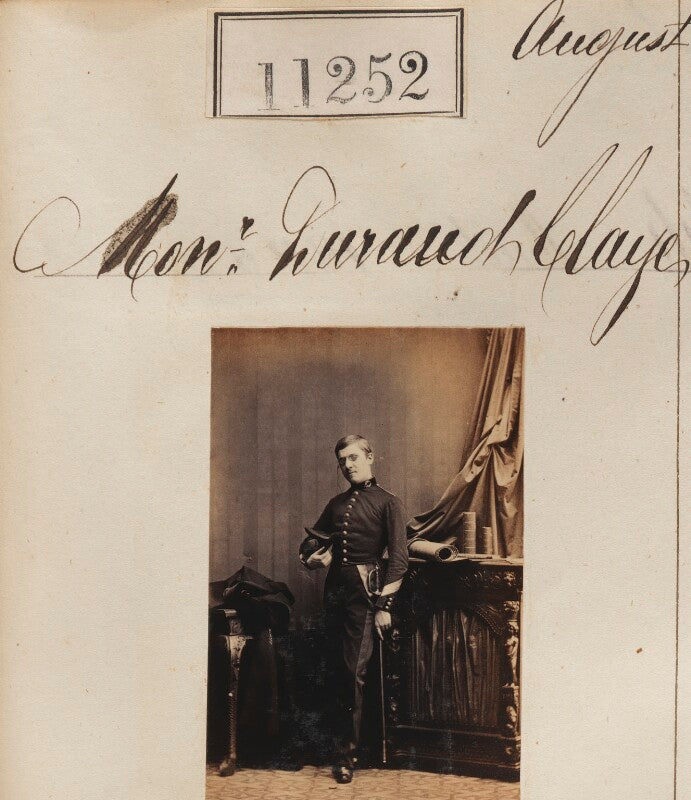 August
11252
Monr. Durand Claye